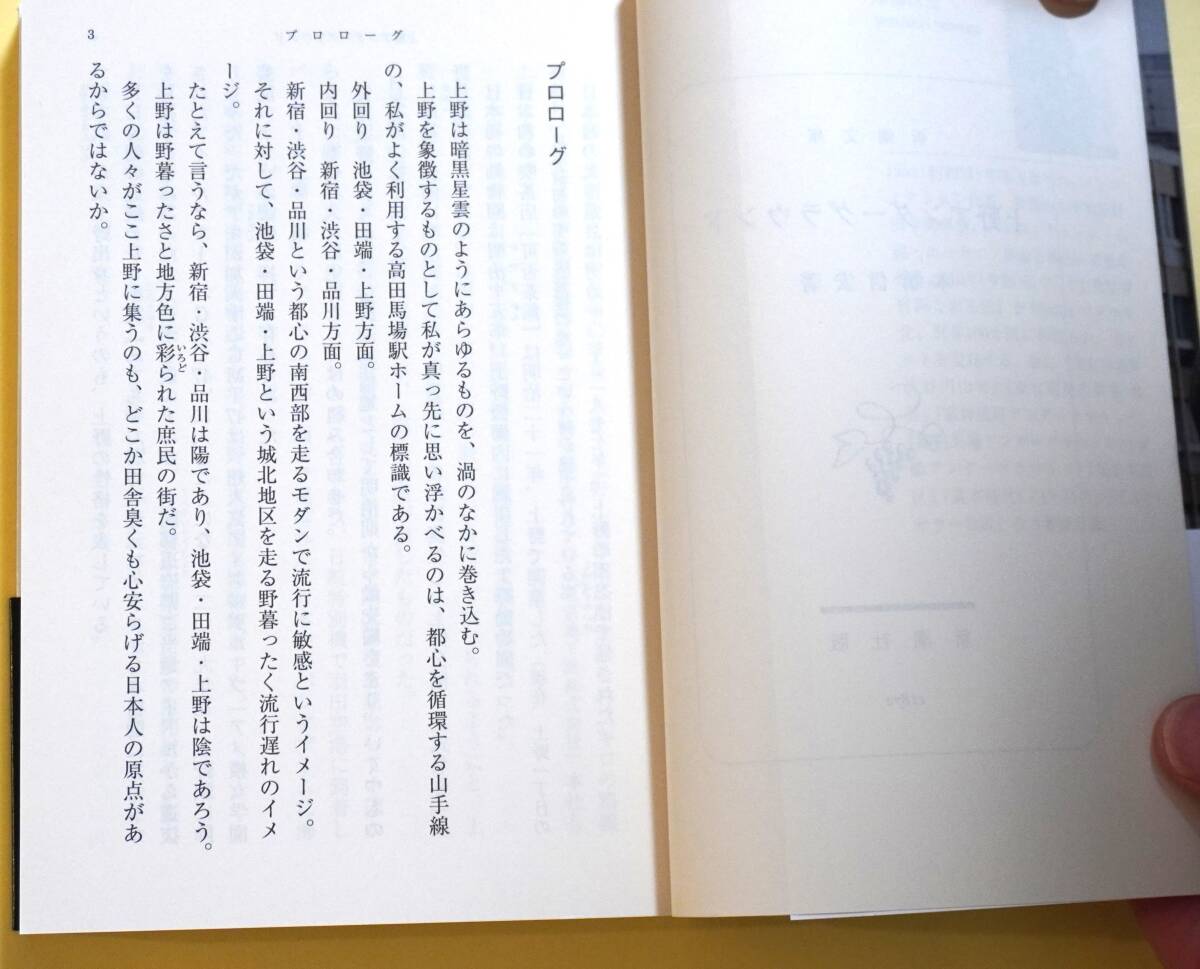 3
プロローグ
プロローグ
上野は暗黒星雲のようにあらゆるものを、渦のなかに巻き込む。
上野を象徴するものとして私が真っ先に思い浮かべるのは、都心を循環する山手線
の、私がよく利用する高田馬場駅ホームの標識である。
外回り 池袋・田端・上野方面。
内回り 新宿・渋谷・品川方面。
新宿・渋谷・品川という都心の南西部を走るモダンで流行に敏感というイメージ。
それに対して、池袋・田端・上野という城北地区を走る野暮ったく流行遅れのイメ
ージ。
たとえて言うなら、新宿・渋谷・品川は陽であり、池袋・田端・上野は陰であろう。
上野は野暮ったさと地方色に彩られた庶民の街だ。
いろど
多くの人々がここ上野に集うのも、どこか田舎臭くも心安らげる日本人の原点があ
るからではないか。